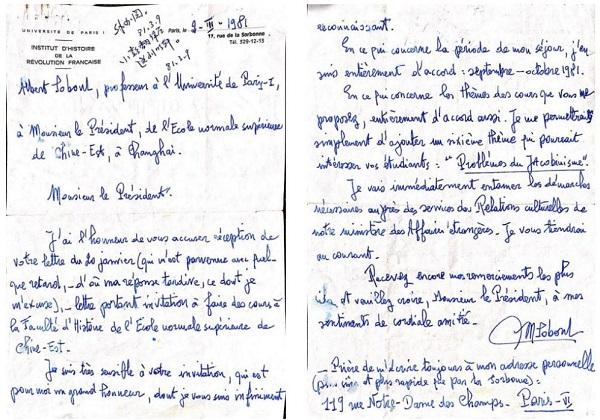 UNIVERSITÉ DE PARIS I
INSTITUT D'HISTOIRE
DE LA
RÉVOLUTION FRANÇAISE
Paris, le 2-III-1981
17, rue de la Sorbonne
Tél. 329-12-13
81.3.9
81.3.9
Albert Soboul, professeur à l'Université de Paris-I,
à Monsieur le Président, de l'Ecole normale supérieure
de Chine-Est, à Shanghai.
Monsieur le Président.
J'ai l'honneur de vous accuser réception de
votre lettre du 20 janvier (qui m'est parvenue avec quel-
que retard, - d'où ma réponse tardive, ce dont je
m'excuse), - lettre portant invitation à faire des cours à
la Faculté d'Histoire de l'Ecole normale supérieure de
Chine-Est.
Je suis très sensible à votre invitation, qui est
pour moi un grand honneur, dont je vous suis infiniment
reconnaissant.
En ce qui concerne la période de mon séjour, j'en
suis entièrement d'accord: septembre-octobre 1981.
En ce qui concerne les thèmes des cours que vous me
proposez, entièrement d'accord aussi. Je me permettrais
simplement d'ajouter un sixième thème qui pourrait
intéresser vos étudiants. - "Problèmes du Jacobinisme".
Je vais immédiatement entamer les démarches
nécessaires auprès des services des Relations culturelles de
notre ministère des Affaires étrangères. Je vous tiendrai
au courant.
Recevez encore mes remerciements les plus
et veuillez croire, Monsieur le Président, à mes
sentiments de cordiale amitié.
AMSoboul
- Prière de m'écrire toujours à mon adresse personnelle
(plus sûr et plus rapide que par la Sorbonne):
119 rue Notre-Dame des Champs. Paris-VI